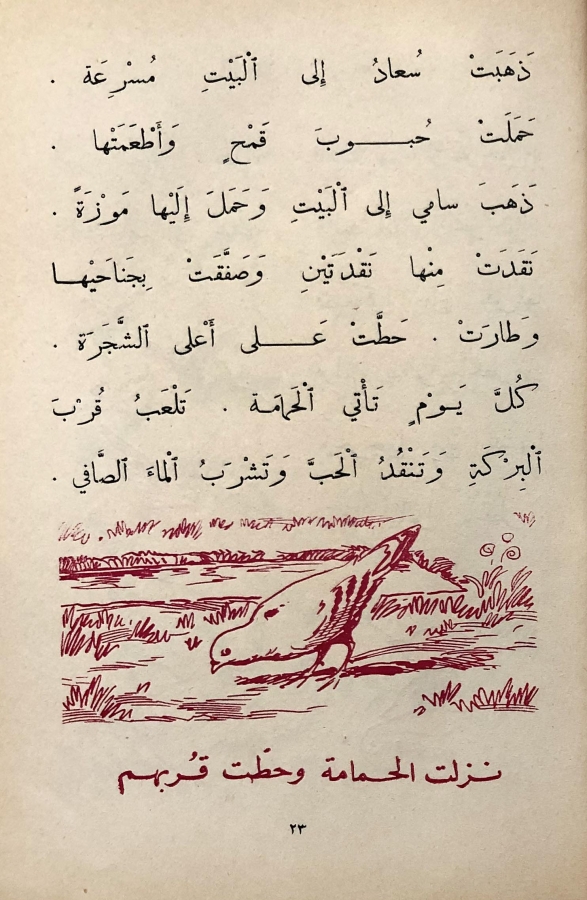 ذَهَبَتْ سُعادُ إِلى ٱلْبَيْتِ مُسْرِعَة .
حَمَلَتْ حُبــوبَ قَمْحٍ وَأَطْعَمَتْها .
ذَهَبَ سامي إِلى ٱلْبَيْتِ وَحَمَلَ إِلَيْها مَوْزَةً .
نَقَدَتْ مِنْها نَقْدَتَيْنِ وَصَفَّقَتْ بِجَناحَيْهــا
وَطارَتْ . حَطَّتْ عَــلى أَعْلى ٱلشَّجَرَة .
كُلَّ يَــوْمٍ تَأْتي ٱلْحَمامَة . تَلْعَبُ قُرْبَ
ٱلْبِرْكَةِ وَتَنْقُدُ ٱلْحَبَّ وَتَشْرَبُ ٱلْماءَ ٱلصَّافي .
نــزلت الحــمامة وحطّت قُــربهــم
٢٣